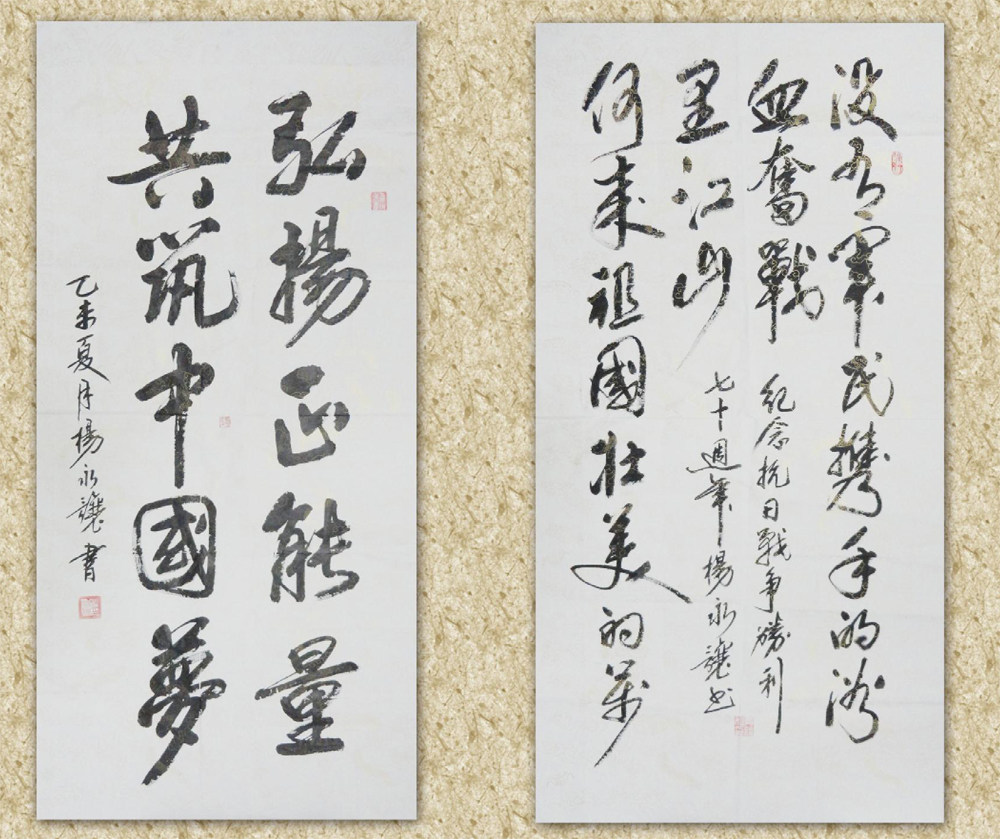 弘揚正能量
共筑中國夢
乙未夏月楊永讓書
没有軍民攜手的浴
血奮戰
何來祖國壯美的萬
里江山
紀念抗日戰争勝利
七十週年楊永讓书